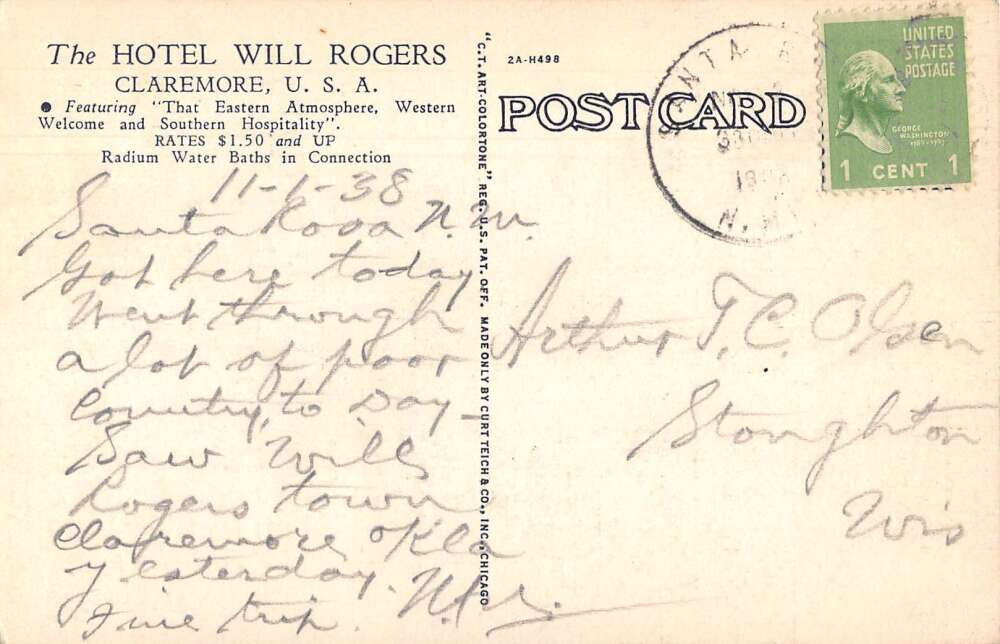 The HOTEL WILL ROGERS
CLAREMORE, U. S. A.
● Featuring "That Eastern Atmosphere, Western
Welcome and Southern Hospitality".
RATES $1.50 and UP
Radium Water Baths in Connection
11-1-38
Santa Rosa N.M.
Got here today
Went through
a lot of poor
Country, to Day -
Saw Will
Rogers town
Claremore Okla
Yesterday.
Fine trip.
"C.T. ART-COLORTONE" REG. U.S. PAT. OFF. MADE ONLY BY CURT TEICH & CO., INC., CHICAGO
2A-H498
POST CARD
SANTA
N. M
UNITED
STATES
POSTAGE
GEORGE
WASHINGTON
1 CENT 1
Arthur T. C. Olsen
Stoughton
Wis